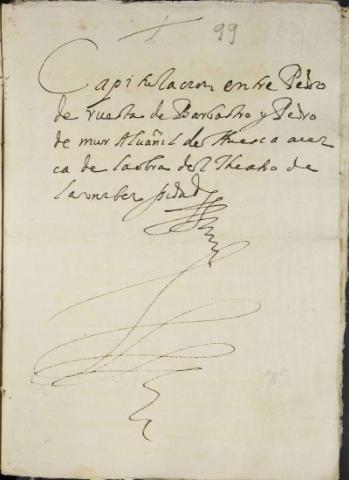 99
Capitulacion entre Pedro
de ruesta de Barbastro y Pedro
de mur Aluañil de Huesca acer
ca de la obra del Theatro de
la vniber sidad